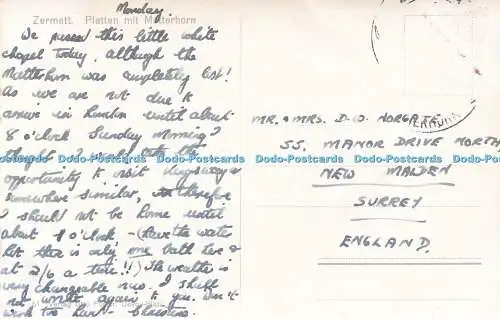 Zermatt. Platten mit Matterhorn
Monday
We passed this little white
chapel today, although the
Matterhorn was completely lost!
As we are not due to
arrive in London until about
8 o'clock Sunday morning I
thought I would take the
opportunity to visit
somewhere similar, so therefore
I should not be home until
about 1 o'clock - (Leave the water
hot there is only one bath here &
at 2/6 a time!!) The weather is
very changeable now. I shall
not write again to you. Don't
work too hard. Christine.
MR. & MRS. D.W. NORGATE,
55, MANOR DRIVE NORTH
NEW MALDEN
SURREY
ENGLAND.
Dodo-Postcards Dodo-Postcards Dodo-Postcards Dodo-Postcards Dodo-Postcards Dodo-Postcards